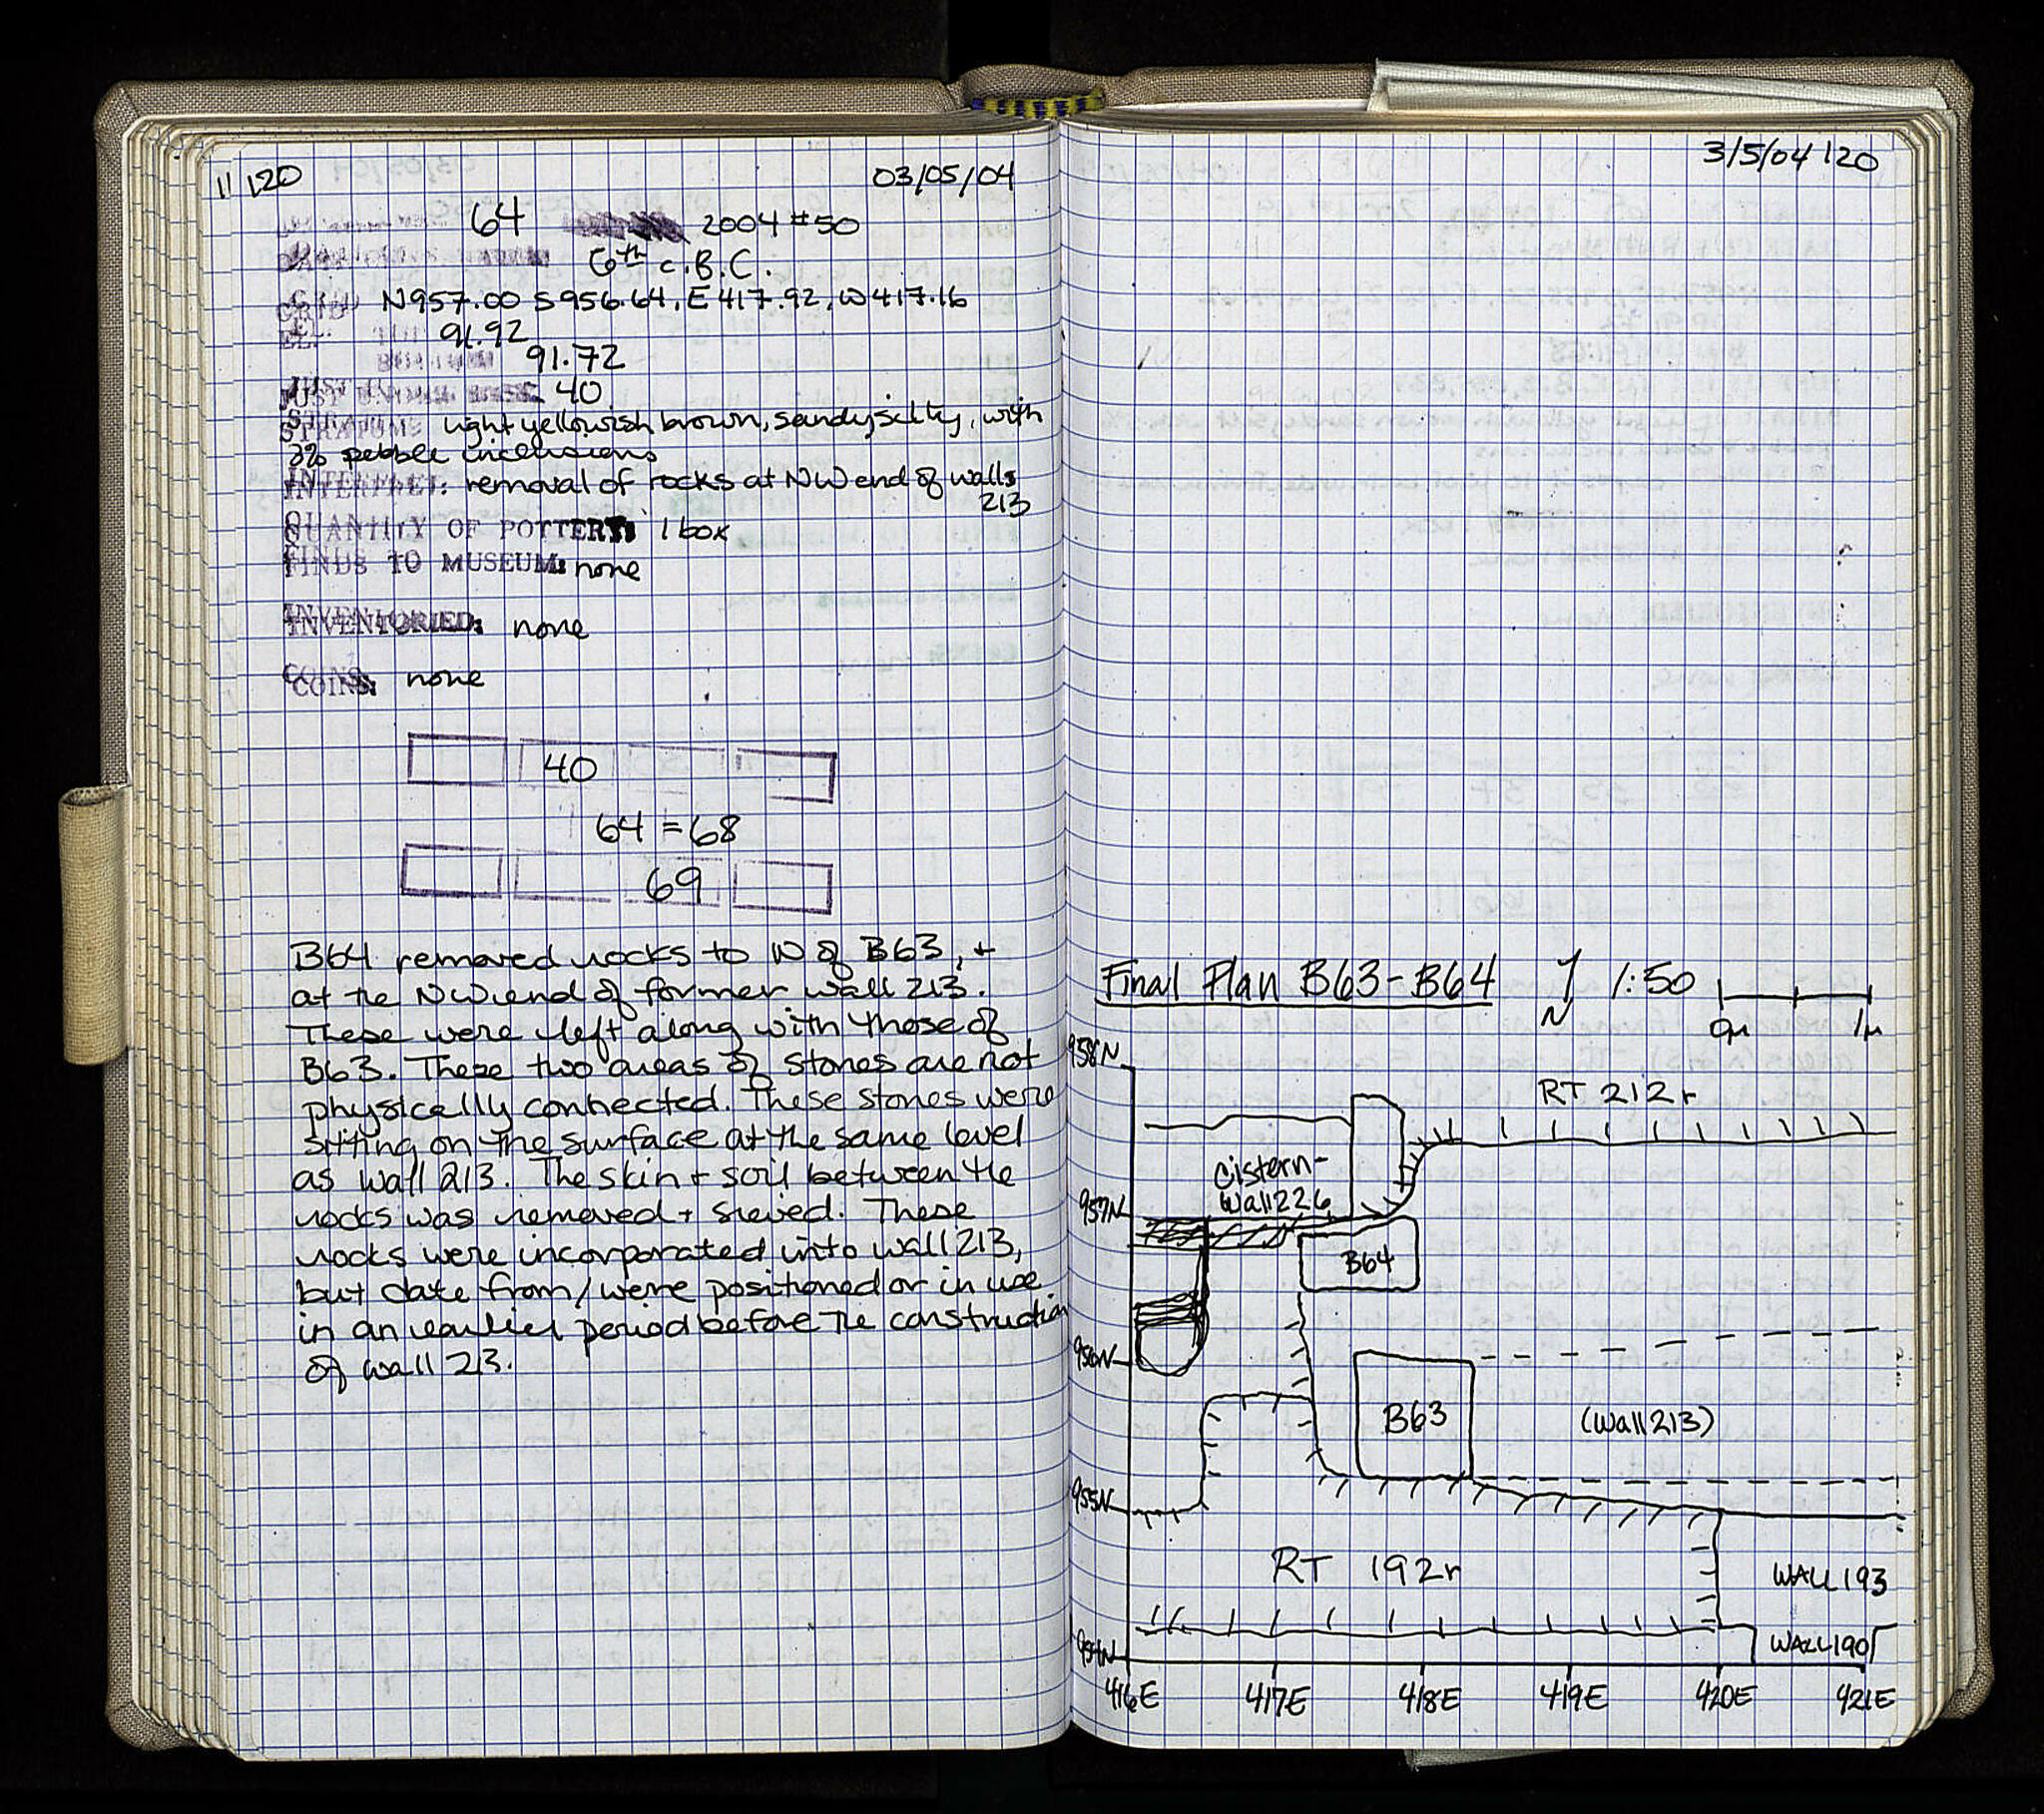 120
03/05/04
64 2004 #50
6th c. B.C.
GRID N957.00 S956.64, E417.92, W417.16
EL. TOP 91.92
BOTTOM 91.72
JUST UNDER 40
STRATUM: light yellowish brown, sandy silty, with
3% pebble inclusions
INTERPRET: removal of rocks at NW end of walls
213
QUANTITY OF POTTERY: 1 box
FINDS TO MUSEUM: none
INVENTORIED: none
COINS: none
40
64 = 68
69
B64 removed rocks to W of B63, +
at the NW end of former wall 213.
These were left along with those of
B63. These two areas of stones are not
physically connected. These stones were
sitting on the surface at the same level
as wall 213. The skin + soil between the
rocks was removed + sieved. These
rocks were incorporated into wall 213,
but date from/were positioned or in use
in an earlier period before the construction
of wall 213.
3/5/04 120
Final Plan B63-B64 N 1:50
0m 1m
958N
RT 212r
Cistern-
Wall 226
957N
B64
956N
B63
(Wall 213)
955N
RT 192r
WALL 193
WALL 190
954N
416E 417E 418E 419E 420E 421E